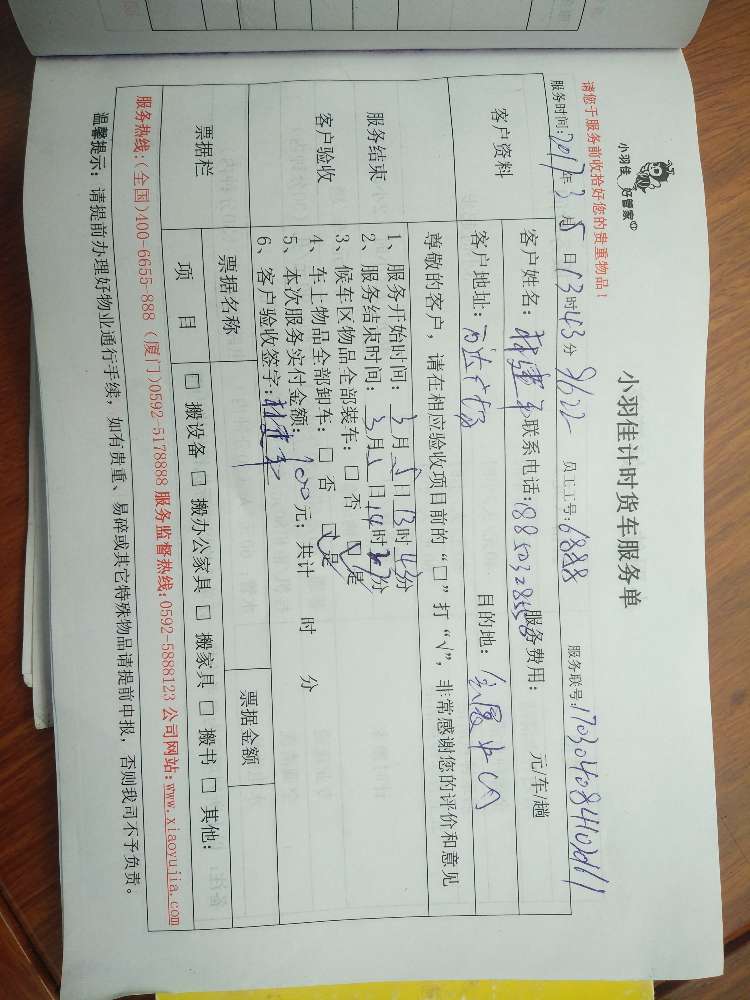 小羽佳 好管家
小羽佳计时货车服务单
请您于服务前收拾好您的贵重物品！
服务时间: 2017年 3月 5日 13时43分 员工工号: 6888 服务联号:
客户资料
客户姓名: 联系电话: 服务费用: 元/车/趟
客户地址: 目的地: 会展中心
尊敬的客户，请在相应验收项目前的“□”打“√”，非常感谢您的评价和意见
服务结束
客户验收
1、服务开始时间: 3月5日13时43分
2、服务结束时间: 3月5日14时分
3、候车区物品全部装车: □ 否 ☑ 是
4、车上物品全部卸车: □ 否 ☑ 是
5、本次服务实付金额: 100元; 共计 时 分
6、客户验收签字:
票据栏
票据名称 票据金额
项 目 □ 搬设备 □ 搬办公家具 □ 搬家具 □ 搬书 □ 其他:
服务热线:(全国)400-6655-888 (厦门)0592-5178888 服务监督热线:0592-5888123 公司网站:www.xiaoyujia.com
温馨提示: 请提前办理好物业通行手续，如有贵重、易碎或其它特殊物品请提前申报，否则我司不予负责。